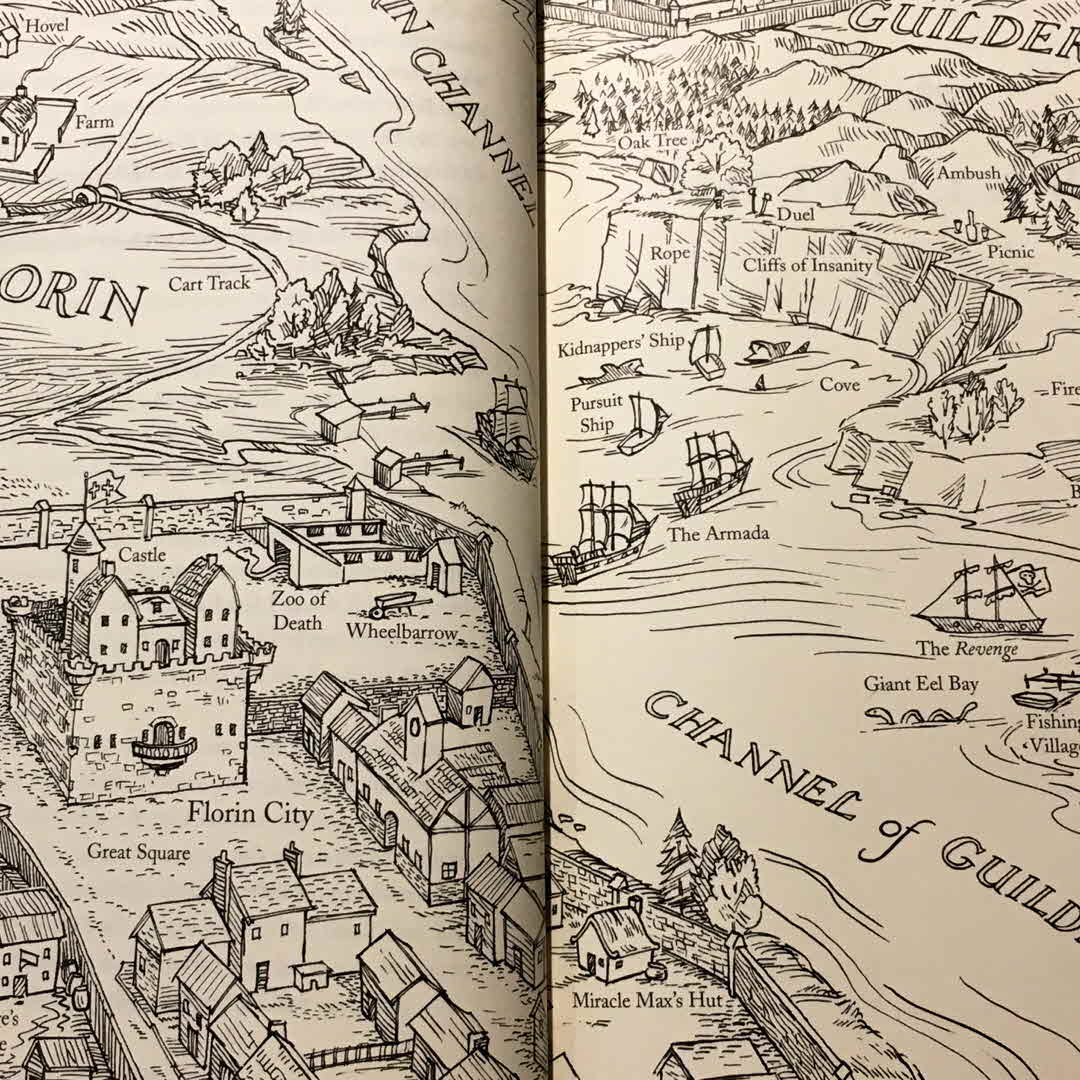 Hovel
Farm
ORIN
Cart Track
IN CHANNEL
Castle
Zoo of
Death
Wheelbarrow
Florin City
Great Square
GUILDER
Oak Tree
Ambush
Duel
Picnic
Rope
Cliffs of Insanity
Kidnappers' Ship
Cove
Fire
Pursuit
Ship
The Armada
The Revenge
Giant Eel Bay
Fishing
Village
CHANNEL of GUILD
Miracle Max's Hut